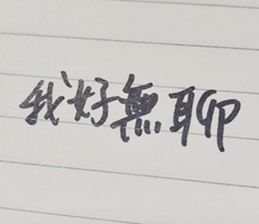 我好無聊